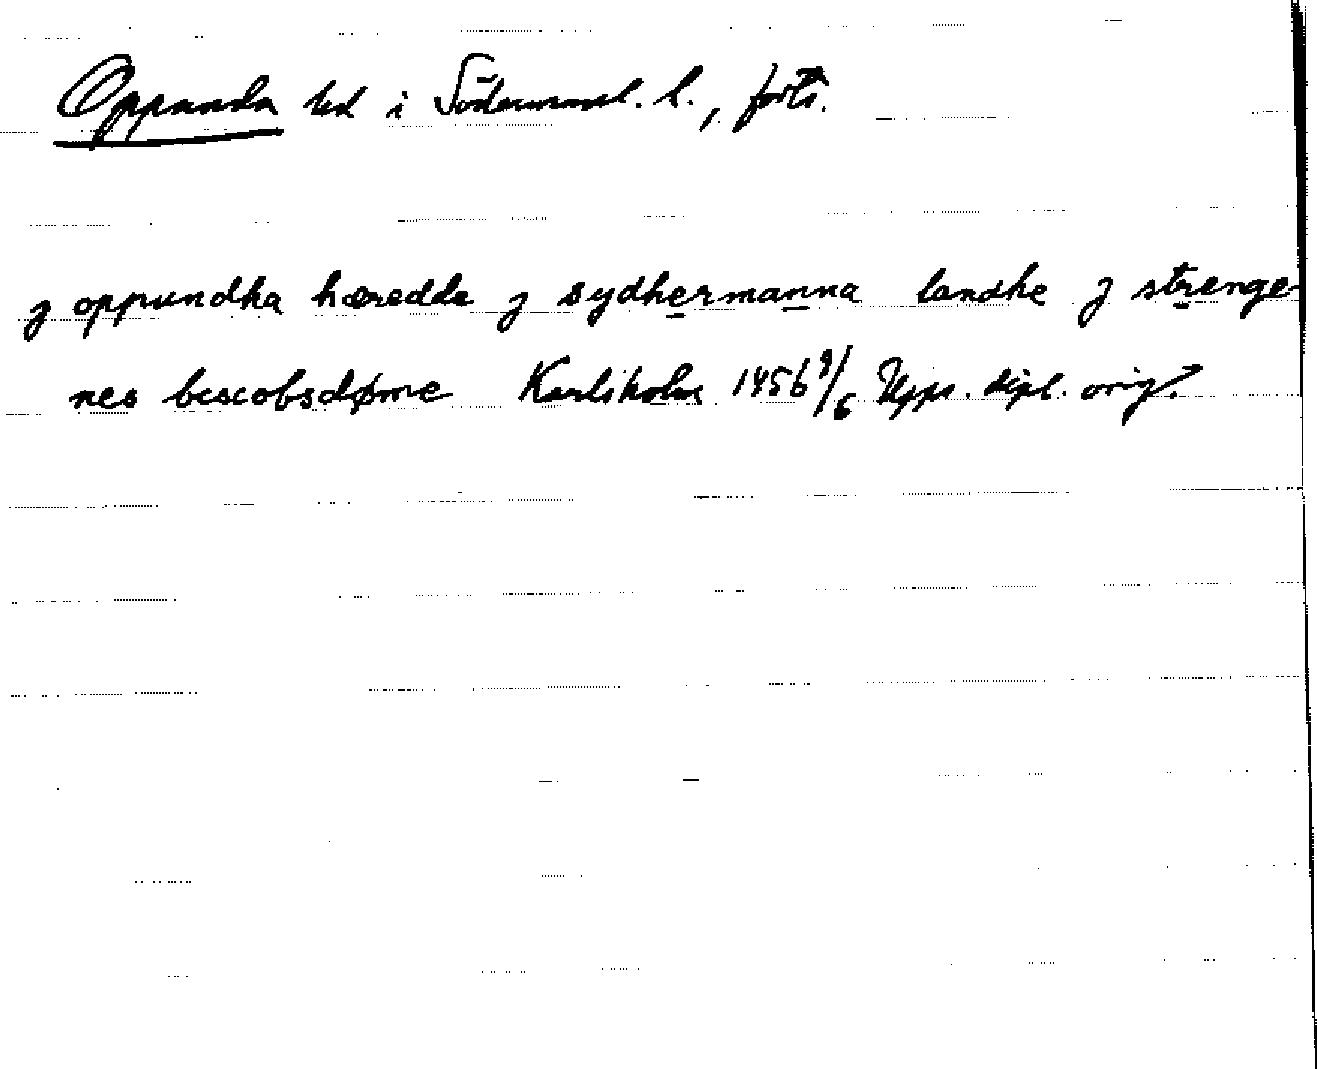 Oppunda hd i Södermanl. l., forts.
j oppundha hæredde j sydhermanna landhe j strenge-
nes bescobsdøme Karlsholm 1456 9/6 Upps. dipl. orig.